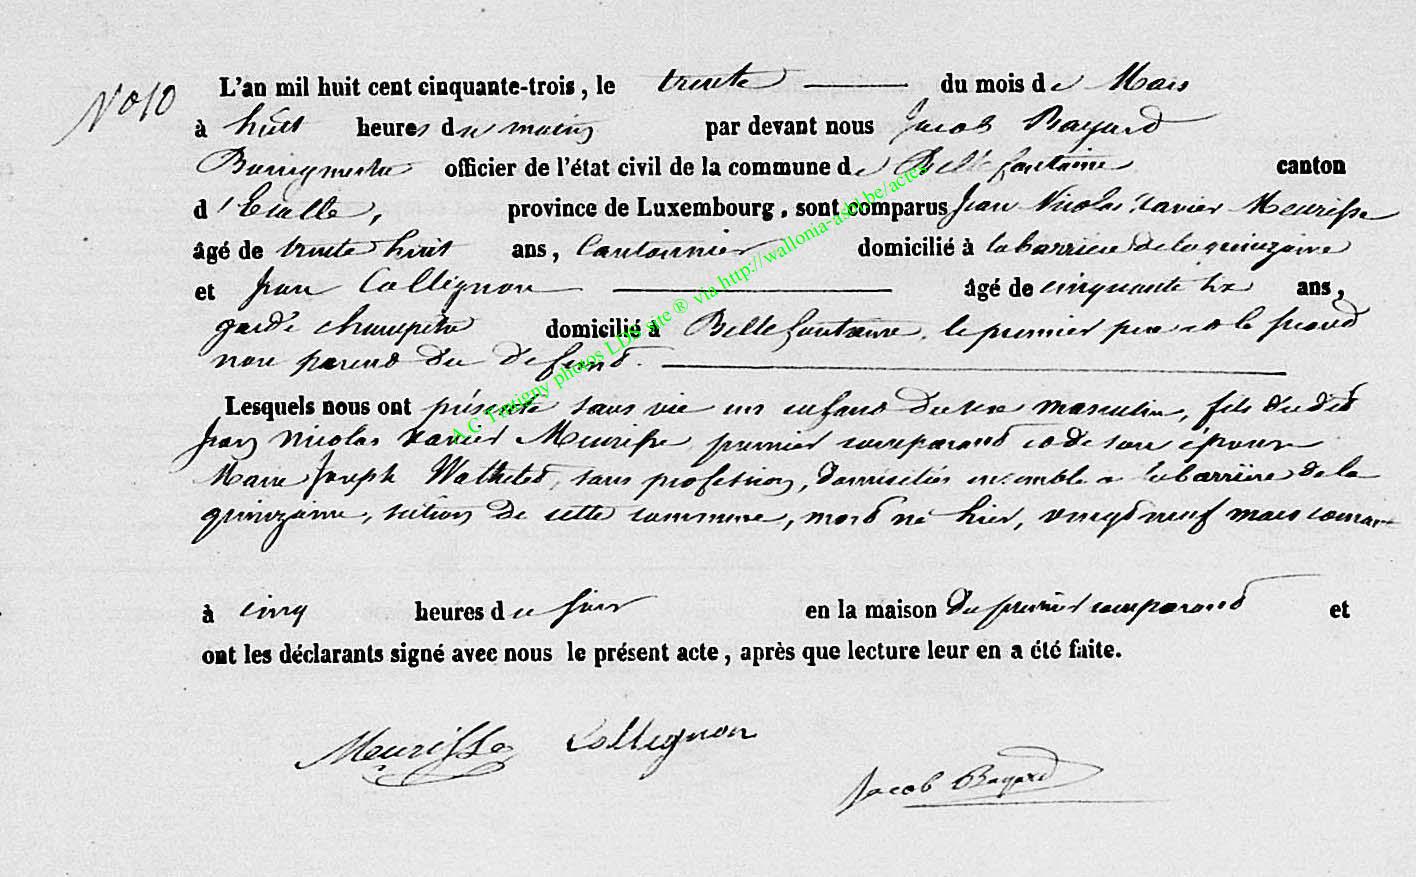 No 10
L'an mil huit cent cinquante-trois, le trente du mois de Mars
à huit heures du matin par devant nous Jacob Bayard
Bourgmestre officier de l'état civil de la commune de Bellefontaine canton
d'Etalle, province de Luxembourg, sont comparus Jean Nicolas Xavier Meurisse
âgé de trente huit ans, Cantonnier domicilié à la barrière de la quinzaine
et Jean Collignon âgé de cinquante six ans,
garde champêtre domicilié à Bellefontaine, le premier père et le second
non parent du défunt.
Lesquels nous ont présenté sans vie un enfant du sexe masculin, fils dudit
Jean Nicolas Xavier Meurisse, premier comparant et de son épouse
Marie Joseph Wathelet, sans profession, domiciliés ensemble à la barrière de la
quinzaine, section de cette commune, mort né hier, vingt neuf mars courant
à cinq heures du soir en la maison du premier comparant et
ont les déclarants signé avec nous le présent acte, après que lecture leur en a été faite.
Meurisse Collignon
Jacob Bayard
A.G. Tintigny photos LDS site ® via http://wallonia-asbl.be/actes